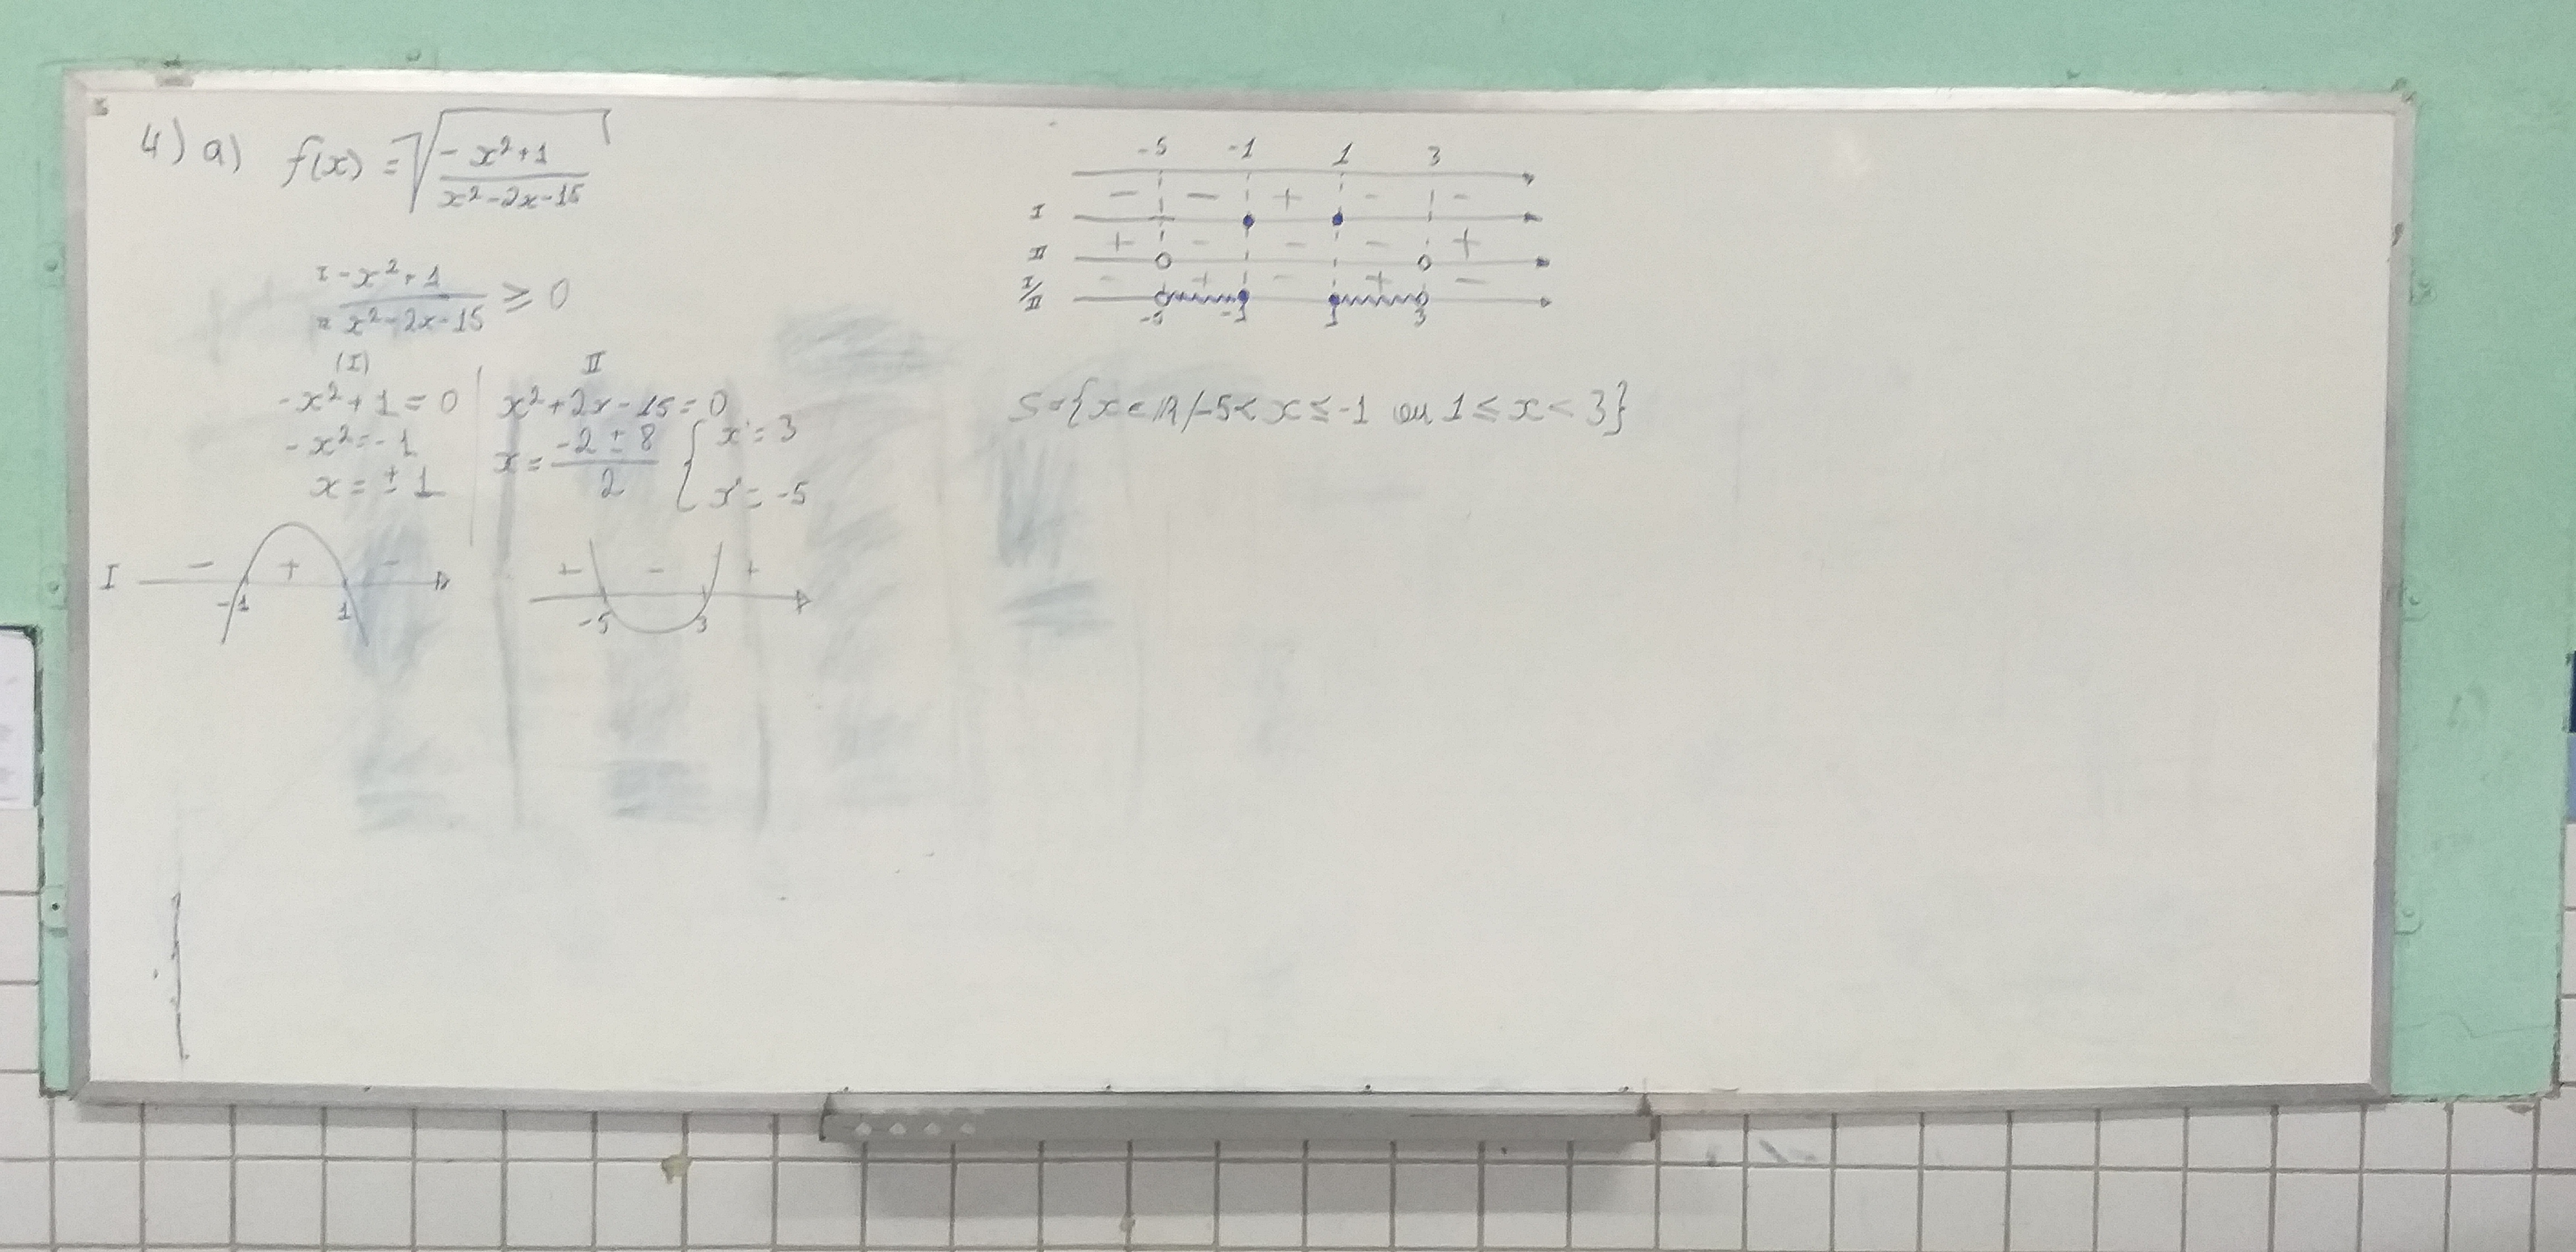 4) a) f(x) = √((-x²+1)/(x²-2x-15))
I -x²+1
II x²-2x-15 ≥ 0
(I)
-x²+1=0
-x²=-1
x=±1
II
x²+2x-15=0
x=(-2±8)/2 { x'=3
x''=-5
I - + -
-1 1
+ - +
-5 3
-5 -1 1 3
I - - + - -
II + - - - +
I/II - + - + -
-5 -1 1 3
S={x∈R/-5<x≤-1 ou 1≤x<3}